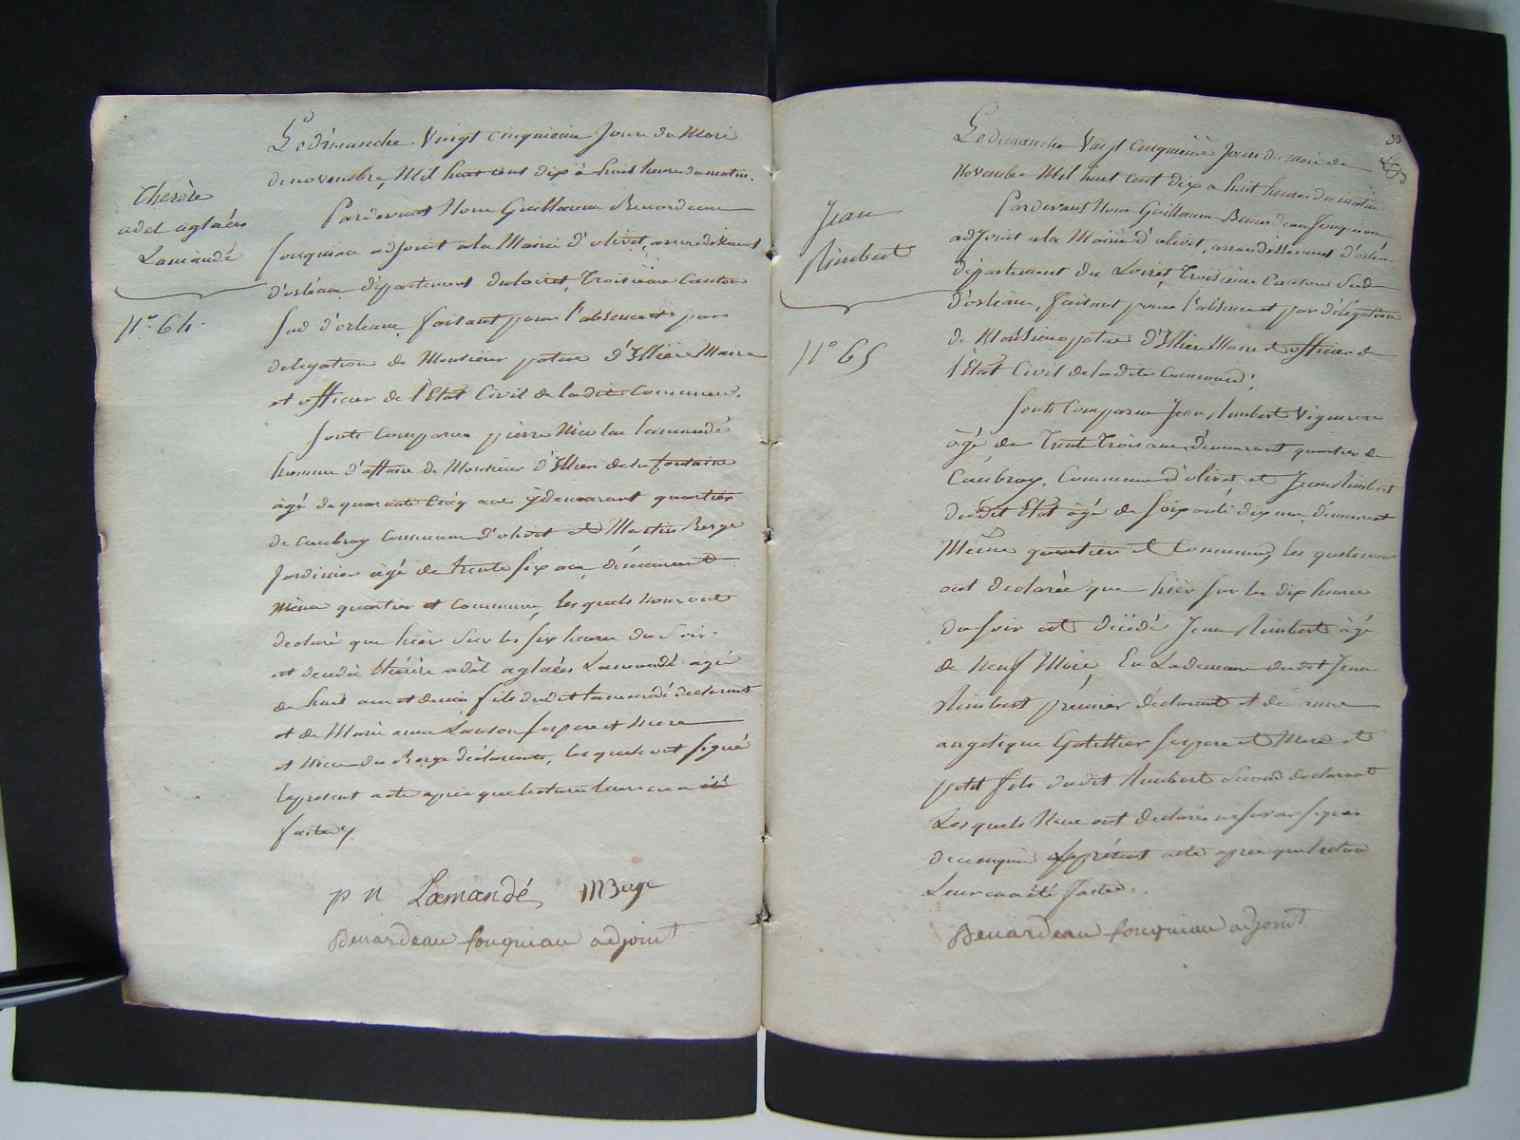 Therèse
adel aglaée
Lamandé
N° 64.
Le dimanche Vingt cinquieme Jour du Mois
de novembre, Mil huit cent dix à huit heure du matin.
Pardevant Nous Guillaume Benardeau
fouquiau adjoint a la Mairie d'olivet, arrondissement
d'orleans, département du loiret, Troisieme Canton
Sud d'orleans, faisant pour l'absence et par
delegation de Monsieur patas d'Illiers Maire
et officier de l'Etat Civil de la dite Commune.
Sont Comparu pierre Nicolas Lamandé
homme d'affaire de Monsieur d'Illiers de la fontaine
âgé de quarante Cinq ans y demeurant quartier
de Caubray Commune d'olivet et Martin Berge
Jardinier âgé de trente six ans, demeurant
même quartier et Commune, les quels nous ont
declaré que hier Sur les six heures du Soir
est decedée thérèse adel aglaée Lamandé agé
de huit ans et demie fils dudit Lamandé declarant
et de Marie anne ses pere et Mere
et Niece du Berge déclarant, les quels ont signé
le présent acte après que lecture leur en a été
faite
p n Lamandé MBerge
Benardeau fouquiau adjoint
Jean
Rimbert
N° 65
Le dimanche Vingt Cinquieme Jour du mois de
Novembre Mil huit cent dix a huit heures du matin
Pardevant Nous Guillaume Benardeau fouquiau
adjoint a la Mairie d'olivet, arrondissement d'orleans
département du Loiret, Troisieme Canton Sud
d'orleans, faisant pour l'absence et par délégation
de Monsieur patas d'Illiers Maire et officier de
l'Etat Civil de la dite Commune.
Sont Comparu Jean Rimbert Vigneron
âgé de Trente Trois ans, demeurant quartier de
Caubray, Commune d'olivet et Jean Rimbert
du dit Etat âgé de Soixante dix ans, demeurant
Même quartier et Commune, les quels nous
ont declarée que hier sur les dix heures
du soir est décédé Jean Rimbert âgé
de Neuf Mois, En la demeure dudit Jean
Rimbert premier déclarant et de
angelique Gatellier ses pere et Mere et
petit fils dudit Rimbert Second declarant
Lesquels Nous ont declaré ne savoir signer
de ce enquis le présent acte apres que lecture
Leur en a été faite.
Benardeau fouquiau adjoint